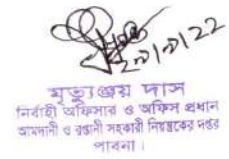 মৃত্যুঞ্জয় দাস
নির্বাহী অফিসার ও অফিস প্রধান
আমদানী ও রপ্তানী সহকারী নিয়ন্ত্রকের দপ্তর
পাবনা।